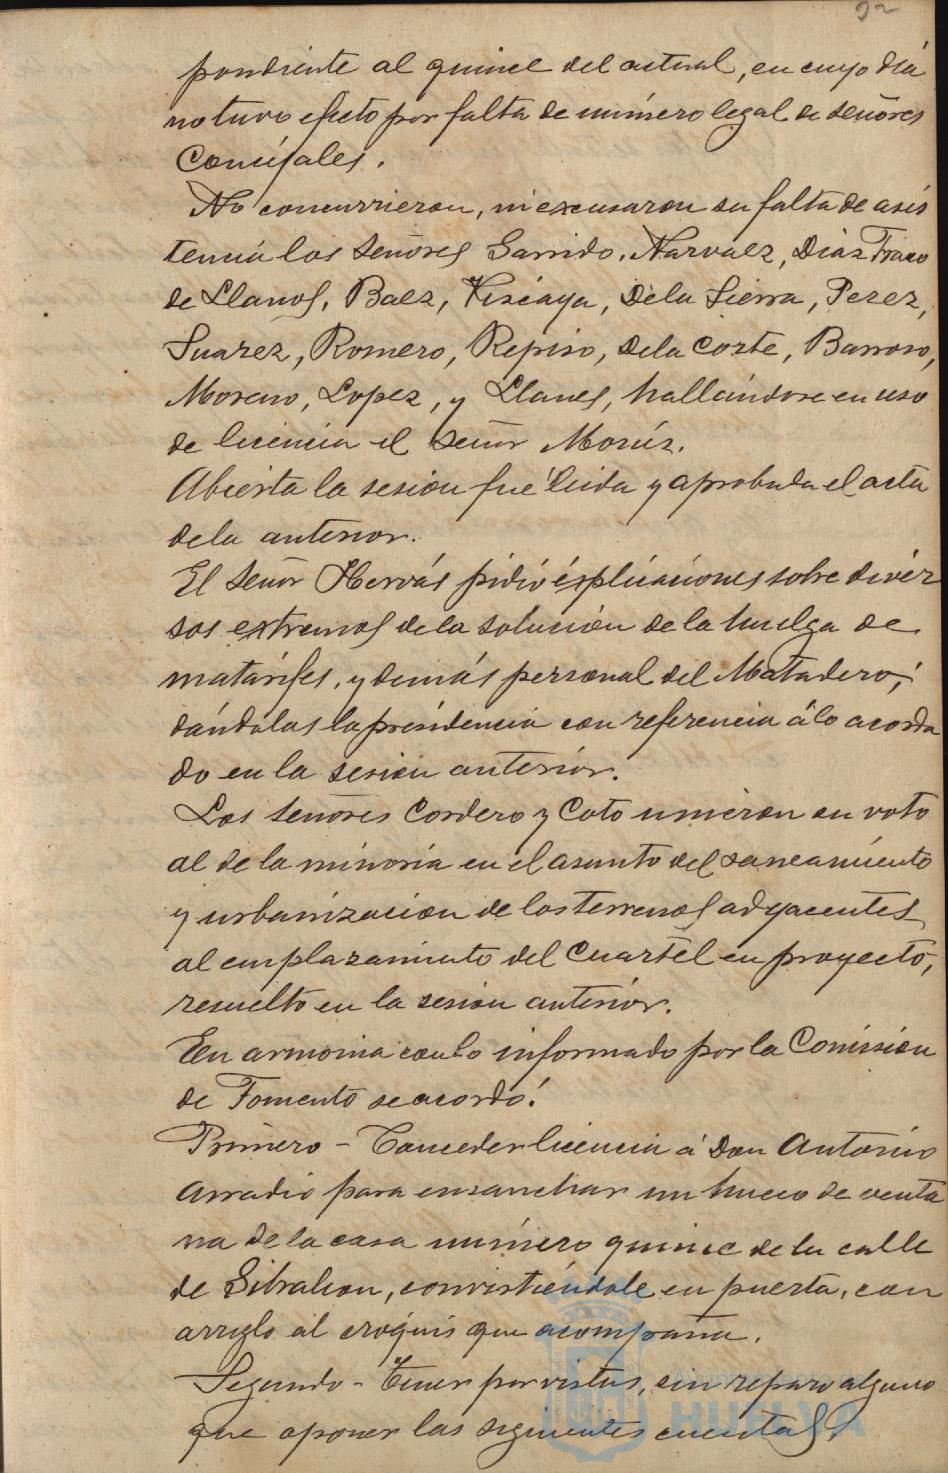 92
pondiente al quince del actual, en cuyo día
no tuvo efecto por falta de número legal de señores
Concejales.
No concurrieron, ni excusaron su falta de asis
tencia los Señores Garrido, Narvaez, Diaz Franco
de Llanos, Baez, Vizcaya, De la Sierra, Perez,
Suarez, Romero, Repiso, De la Corte, Barroso,
Moreno, Lopez, y Llanes, hallándose en uso
de licencia el Señor
Abierta la sesion fué leida y aprobada el acta
de la anterior.
El Señor Hervás pidió ésplicaciones sobre diver
sos extremos de la solución de la huelga de
matarifes, y demás personal del Matadero;
dándolas la presidencia con referencia á lo acorda
do en la sesion anterior.
Los Señores Cordero y Coto unieron su voto
al de la minoria en el asunto del saneamiento
y urbanizacion de los terrenos adyacentes
al emplazamiento del Cuartel en proyecto,
resuelto en la sesion anterior.
En armonia con lo informado por la Comision
de Fomento se acordó:
Primero - Conceder licencia á Don Antonio
Arradio para ensanchar un hueco de venta
na de la casa número quince de la calle
de Gibraleon, convirtiéndole en puerta, con
arreglo al cróquis que acompaña.
Segundo - Tener por vistas, sin reparo alguno
que oponer las siguientes cuentas,
HUELVA